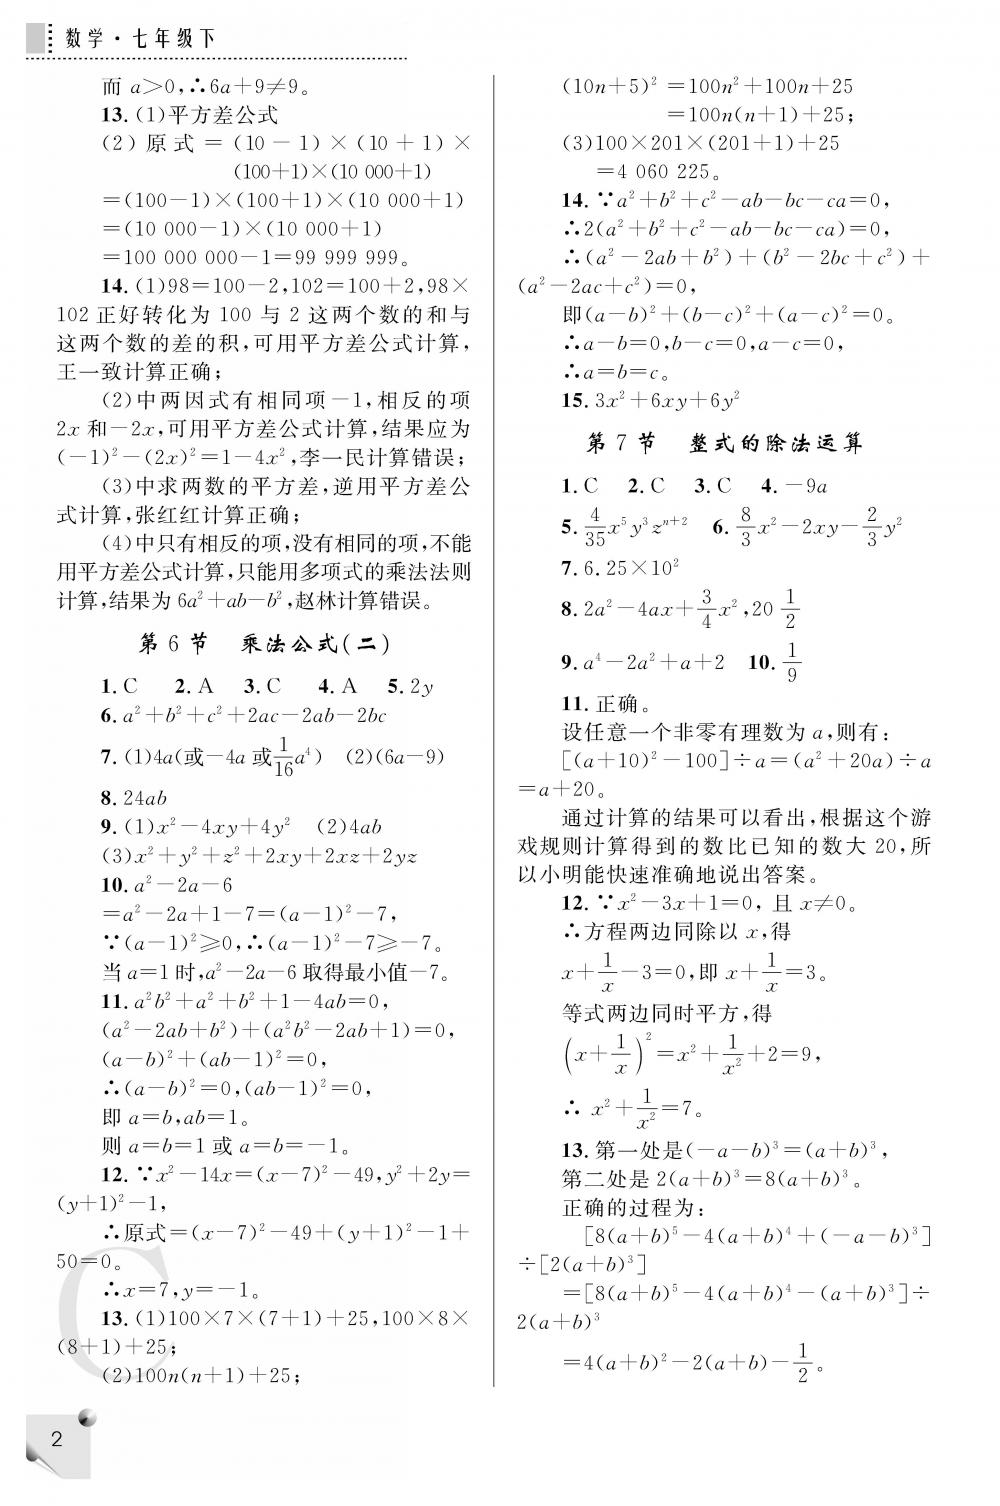 数学·七年级下
而 a＞0,∴6a+9≠9。
13. (1)平方差公式
(2) 原 式 = (10 - 1) × (10 + 1) ×
(100+1)×(10 000+1)
=(100-1)×(100+1)×(10 000+1)
=(10 000-1)×(10 000+1)
=100 000 000-1=99 999 999。
14. (1)98=100-2,102=100+2,98×
102 正好转化为 100 与 2 这两个数的和与
这两个数的差的积,可用平方差公式计算,
王一致计算正确;
(2)中两因式有相同项-1,相反的项
2x 和-2x,可用平方差公式计算,结果应为
(-1)²-(2x)²=1-4x²,李一民计算错误;
(3)中求两数的平方差,逆用平方差公
式计算,张红红计算正确;
(4)中只有相反的项,没有相同的项,不能
用平方差公式计算,只能用多项式的乘法法则
计算,结果为 6a²+ab-b²,赵林计算错误。
第 6 节 乘法公式(二)
1. C 2. A 3. C 4. A 5. 2y
6. a²+b²+c²+2ac-2ab-2bc
7. (1)4a(或-4a 或 1/16 a⁴) (2)(6a-9)
8. 24ab
9. (1)x²-4xy+4y² (2)4ab
(3)x²+y²+z²+2xy+2xz+2yz
10. a²-2a-6
=a²-2a+1-7=(a-1)²-7,
∵(a-1)²≥0,∴(a-1)²-7≥-7。
当 a=1 时,a²-2a-6 取得最小值-7。
11. a²b²+a²+b²+1-4ab=0,
(a²-2ab+b²)+(a²b²-2ab+1)=0,
(a-b)²+(ab-1)²=0,
∴(a-b)²=0,(ab-1)²=0,
即 a=b,ab=1。
则 a=b=1 或 a=b=-1。
12. ∵x²-14x=(x-7)²-49,y²+2y=
(y+1)²-1,
∴原式=(x-7)²-49+(y+1)²-1+
50=0。
∴x=7,y=-1。
13. (1)100×7×(7+1)+25,100×8×
(8+1)+25;
(2)100n(n+1)+25;
(10n+5)² =100n²+100n+25
=100n(n+1)+25;
(3)100×201×(201+1)+25
=4 060 225。
14. ∵a²+b²+c²-ab-bc-ca=0,
∴2(a²+b²+c²-ab-bc-ca)=0,
∴(a²-2ab+b²)+(b²-2bc+c²)+
(a²-2ac+c²)=0,
即(a-b)²+(b-c)²+(a-c)²=0。
∴a-b=0,b-c=0,a-c=0,
∴a=b=c。
15. 3x²+6xy+6y²
第 7 节 整式的除法运算
1. C 2. C 3. C 4. -9a
5. 4/35 x⁵y³zⁿ⁺² 6. 8/3 x²-2xy-2/3 y²
7. 6.25×10²
8. 2a²-4ax+3/4 x²,20 1/2
9. a⁴-2a²+a+2 10. 1/9
11. 正确。
设任意一个非零有理数为 a,则有:
[(a+10)²-100]÷a=(a²+20a)÷a
=a+20。
通过计算的结果可以看出,根据这个游
戏规则计算得到的数比已知的数大 20,所
以小明能快速准确地说出答案。
12. ∵x²-3x+1=0, 且 x≠0。
∴方程两边同除以 x,得
x+1/x-3=0,即 x+1/x=3。
等式两边同时平方,得
(x+1/x)²=x²+1/x²+2=9,
∴ x²+1/x²=7。
13. 第一处是(-a-b)³=(a+b)³,
第二处是 2(a+b)³=8(a+b)³。
正确的过程为:
[8(a+b)⁵-4(a+b)⁴+(-a-b)³]
÷[2(a+b)³]
=[8(a+b)⁵-4(a+b)⁴-(a+b)³]÷
2(a+b)³
=4(a+b)²-2(a+b)-1/2。
2
C